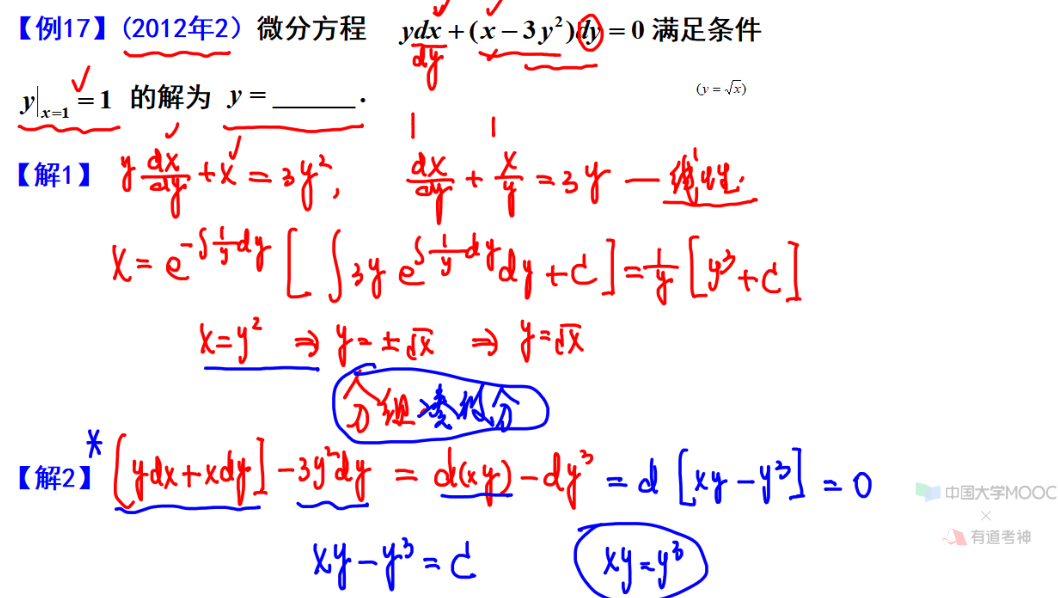 【例17】(2012年2) 微分方程 ydx + (x − 3y²)dy = 0 满足条件
dy
y|ₓ₌₁ = 1 的解为 y = ______.
(y = √x)
【解1】 y dx/dy + x = 3y², dx/dy + x/y = 3y — 线性.
x = e^(−∫(1/y)dy) [∫3y e^(∫(1/y)dy) dy + C] = 1/y [y³ + C]
x = y² ⇒ y = ±√x ⇒ y = √x
分组凑微分
*
【解2】 [ydx + xdy] − 3y²dy = d(xy) − dy³ = d[xy − y³] = 0
中国大学MOOC
×
有道考神
xy − y³ = C xy = y³